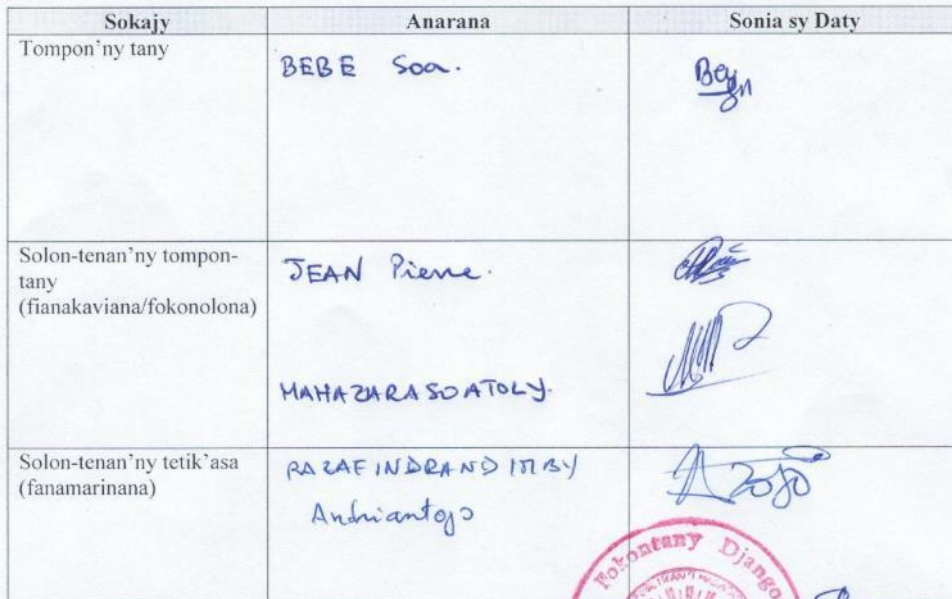 Sokajy Anarana Sonia sy Daty
Tompon'ny tany
BEBE Soa.
Solon-tenan'ny tompon-
tany
(fianakaviana/fokonolona)
JEAN Pierre.
MAHAZARASOATOLY.
Solon-tenan'ny tetik'asa
(fanamarinana)
RAZAFINDRANDIMBY
Andriantojo
Fokontany Django